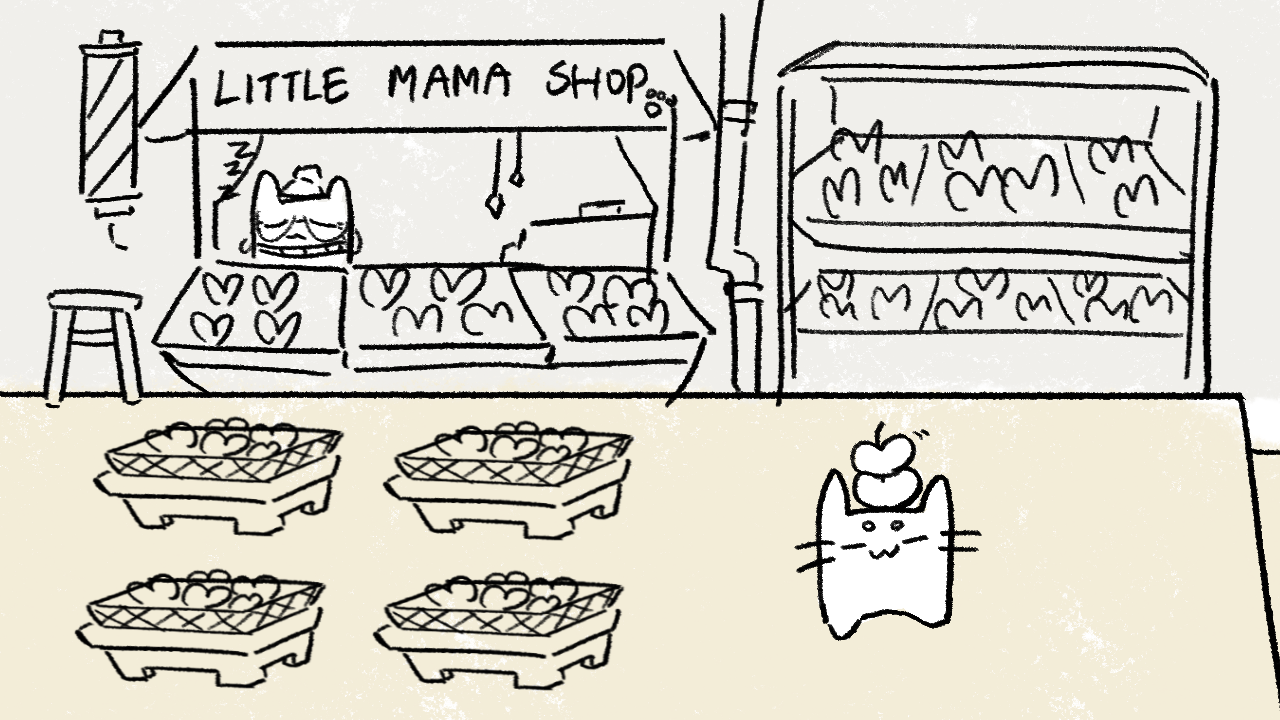 LITTLE MAMA SHOP